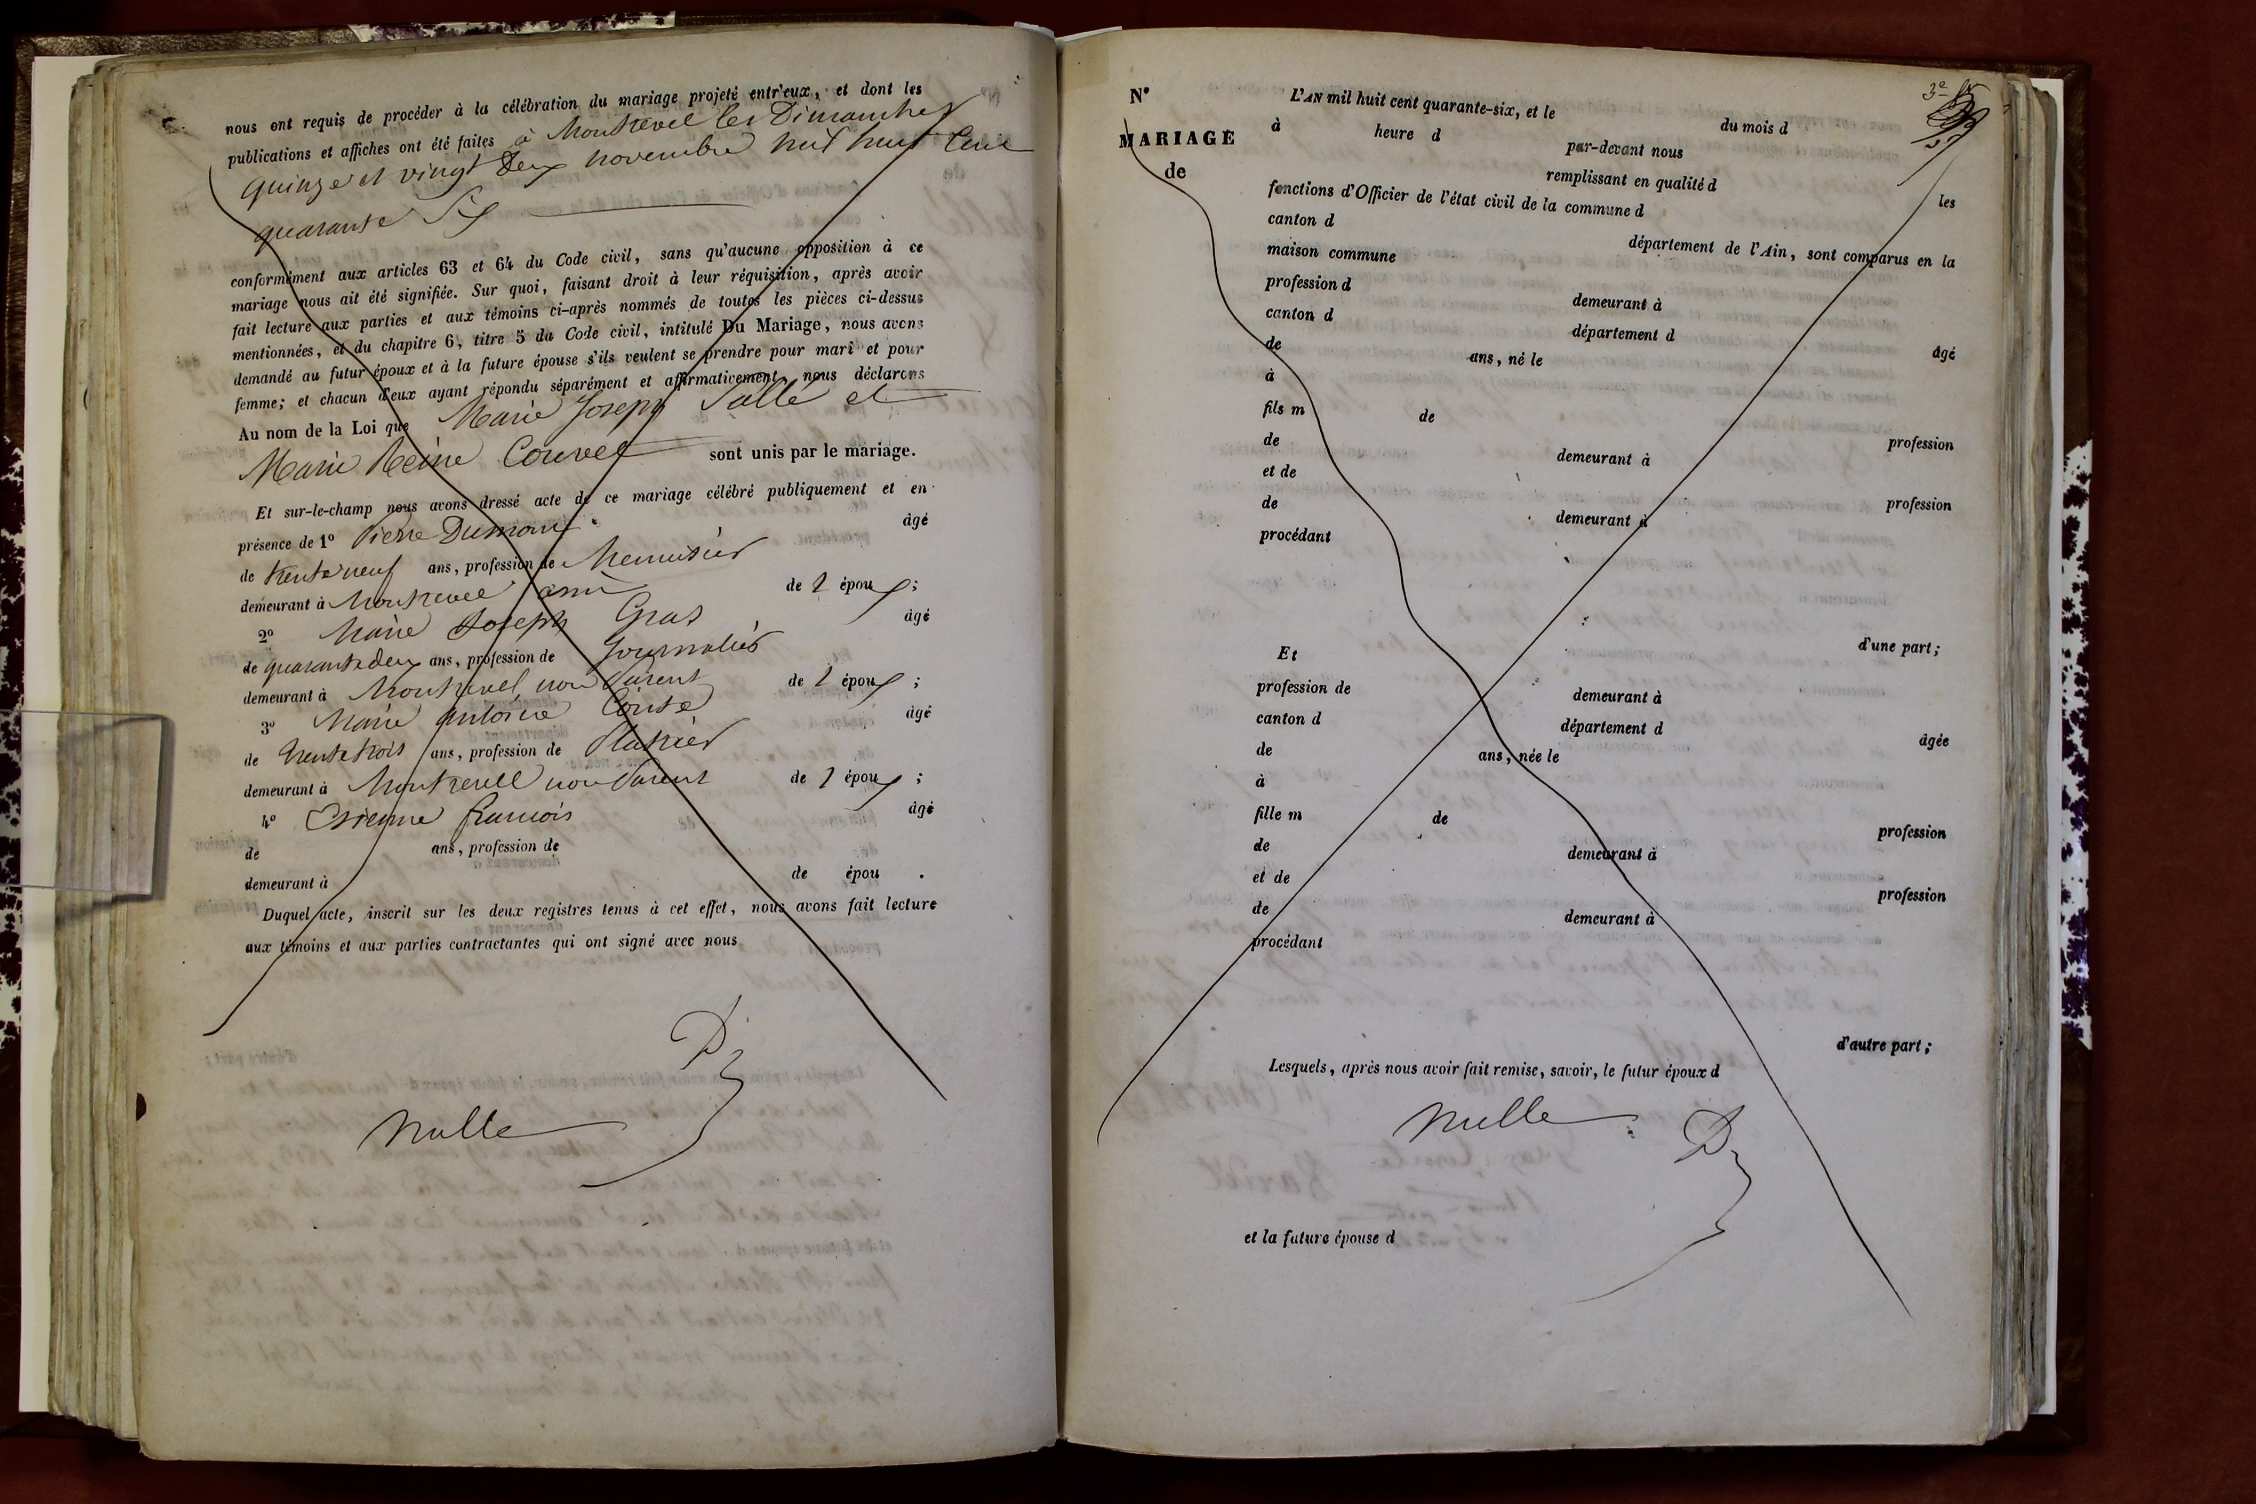 nous ont requis de procéder à la célébration du mariage projeté entr'eux, et dont les
publications et affiches ont été faites à Montrevel les Dimanches
quinze et vingt deux novembre huit cent
quarante Six
conformément aux articles 63 et 64 du Code civil, sans qu'aucune opposition à ce
mariage nous ait été signifiée. Sur quoi, faisant droit à leur réquisition, après avoir
fait lecture aux parties et aux témoins ci-après nommés de toutes les pièces ci-dessus
mentionnées, et du chapitre 6, titre 5 du Code civil, intitulé Du Mariage, nous avons
demandé au futur époux et à la future épouse s'ils veulent se prendre pour mari et pour
femme; et chacun d'eux ayant répondu séparément et affirmativement, nous déclarons
Au nom de la Loi que Marie Joseph Sallé et
Marie Reine Couvet sont unis par le mariage.
Et sur-le-champ nous avons dressé acte de ce mariage célébré publiquement et en
présence de 1º Pierre Dumont âgé
de trente neuf ans, profession de Menuisier
demeurant à Montrevel ami de l époux;
2º Marie Joseph Gras âgé
de quarante deux ans, profession de Journalier
demeurant à Montrevel, non Parent de l époux;
3º Marie Antoine Conte âgé
de trente trois ans, profession de Platrier
demeurant à Montrevel non Parent de l époux;
4º Etienne francois âgé
de ans, profession de
demeurant à de épou .
Duquel acte, inscrit sur les deux registres tenus à cet effet, nous avons fait lecture
aux témoins et aux parties contractantes qui ont signé avec nous
Nulle
Nº
MARIAGE
de
L'AN mil huit cent quarante-six, et le du mois d
à heure d par-devant nous
remplissant en qualité d les
fonctions d'Officier de l'état civil de la commune d
canton d département de l'Ain, sont comparus en la
maison commune
profession d demeurant à
canton d département d âgé
de ans, né le
à
fils m de profession
de demeurant à
et de profession
de demeurant à
procédant
d'une part;
Et
profession de demeurant à
canton d département d âgée
de ans, née le
à
fille m de profession
de demeurant à
et de profession
de demeurant à
procédant
d'autre part;
Lesquels, après nous avoir fait remise, savoir, le futur époux d
Nulle
et la future épouse d